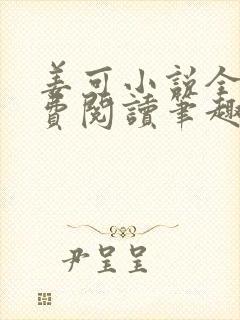 姜可小说全
費閱讀筆趣
尹呈呈